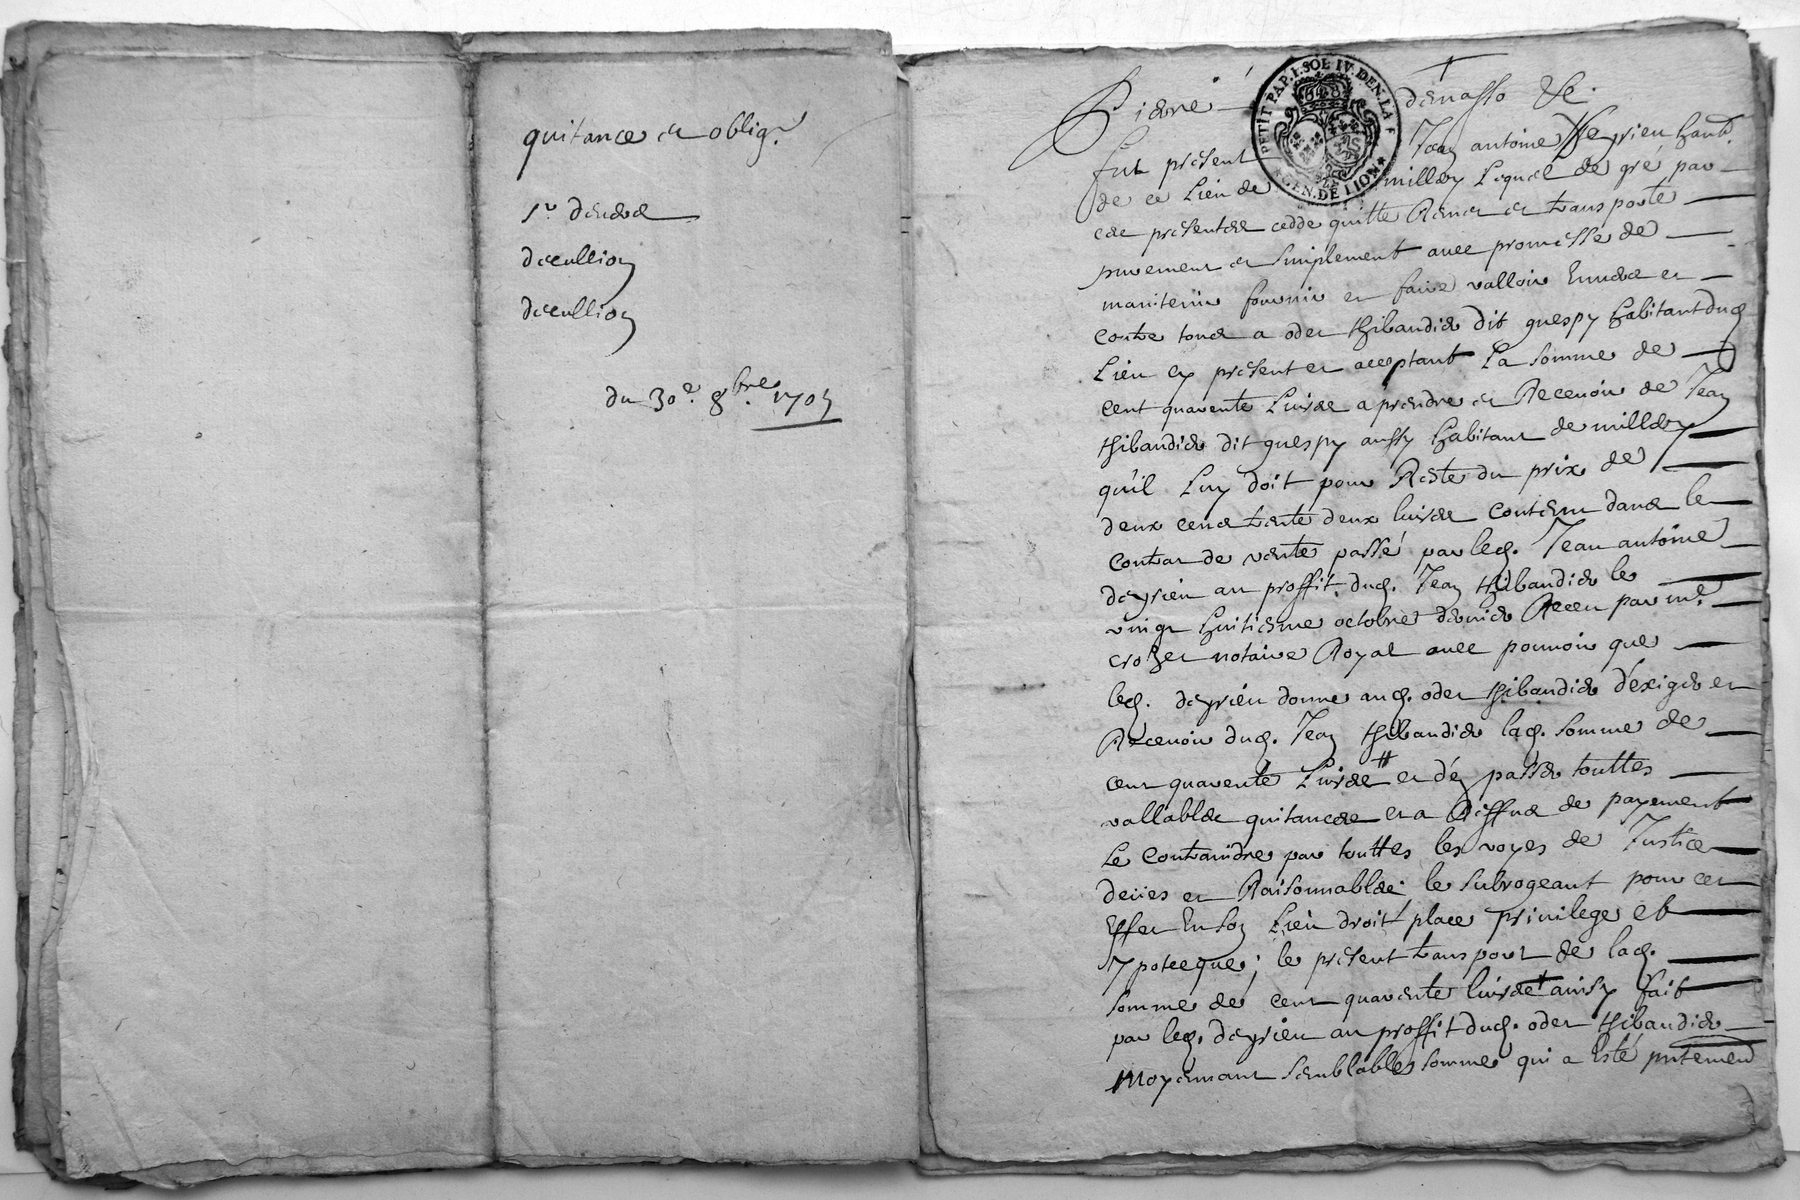 quitance et oblig.
Sr
du 30e. 8bre.
PETIT PAP. 1. SOL IV. DEN. LA F
GEN. DE LION
Pierre
fut présent Jean antoine haut.
de ce Lieu de millery Lequel de gré par
ces presentes cedde quitte Remet et transporte
purement et simplement avec promesse de
maintenir fournir et faire valloir Envers et
contre tous a odet thibaudier dit guespy habitant dud
Lieu cy présent et aceptant La somme de
cent quarente Livres a prendre et Recevoir de Jean
thibaudier dit guespy aussy habitant de millery
qu'il Luy doit pour Reste du prix de
deux cens trente deux livres contenu dans le
contrat de vente passé par led. Jean antoine
deyrieu au proffit dud. Jean thibaudier le
vingt huitiesme octobre dernier Receu par me.
crozet notaire Royal avec pouvoir que
led. deyrieu donne aud. odet thibaudier d'éxiger et
Recevoir dud. Jean thibaudier lad. somme de
cent quarente Livres et d'en passer touttes
vallables quitances et a Reffus de payement
Le Contraindre par touttes les voyes de Justice
deües et Raisonnables le subrogeant pour cet
Effet En son Lieu droit place privilege et
Ypoteeque; le présent transport de lad.
somme de cent quarente livres ainsy fait
par led. deyrieu au proffit dud. odet thibaudier
Moyennant semblable somme qui a Esté